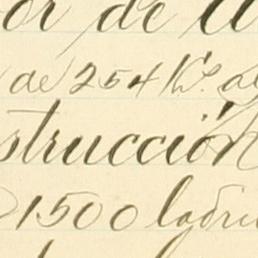 or de a
de 254 Ks. de
strucción
1500 ladri